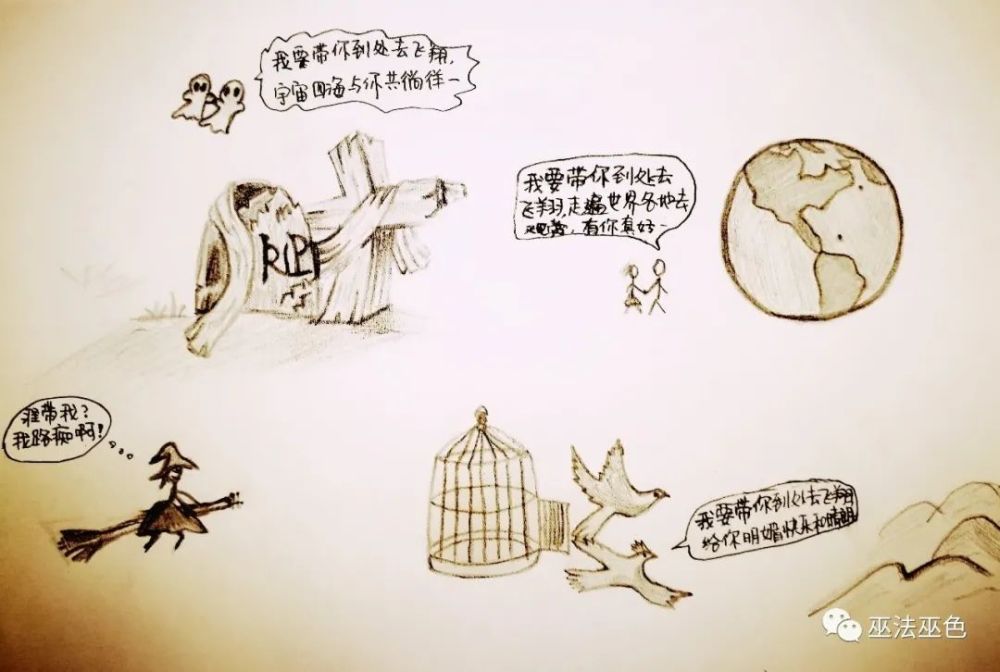 我要带你到处去飞翔,
宇宙四海与你共徜徉~
我要带你到处去
飞翔,走遍世界各地去
观赏,有你真好~
RIP
谁带我?
我路痴啊!
我要带你到处去飞翔
给你明媚快乐和晴朗
巫法巫色